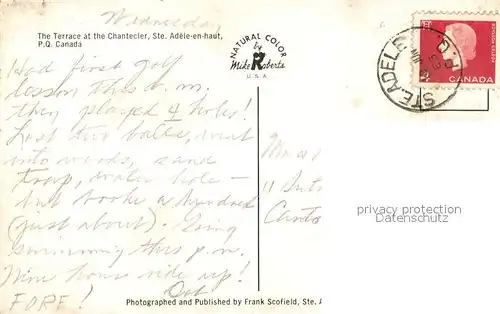 Wednesday
The Terrace at the Chantecler, Ste. Adèle-en-haut,
P.Q. Canada
NATURAL COLOR
by
Mike Roberts
U.S.A.
STE ADELE
P.Q.
CANADA
Had first golf
lesson this a.m.
then played 4 holes!
Lost two balls, went
into woods, sand
trap, water hole —
but broke a hundred
(just about). Going
swimming this p.m.
Nine hour ride up!
FORE!
11
Canto
privacy protection
Datenschutz
Photographed and Published by Frank Scofield, Ste. J